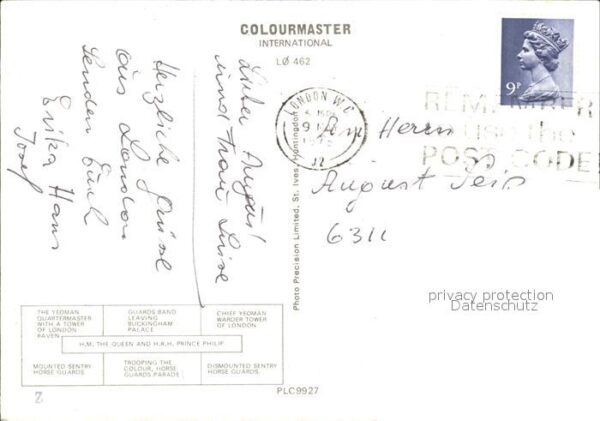 COLOURMASTER
INTERNATIONAL
LØ 462
Lieber August
und Frau Luise
Herzliche Grüsse
aus London
senden Euch
Erika Hans
Josef
LONDON W.C.
9
REMEMBER
use the
POST CODE
9P
Herrn
August
6311
Photo Precision Limited, St. Ives, Huntingdon
privacy protection
Datenschutz
THE YEOMAN
QUARTERMASTER
WITH A TOWER
OF LONDON
RAVEN
GUARDS BAND
LEAVING
BUCKINGHAM
PALACE
CHIEF YEOMAN
WARDER TOWER
OF LONDON.
H.M. THE QUEEN AND H.R.H. PRINCE PHILIP
MOUNTED SENTRY
HORSE GUARDS.
TROOPING THE
COLOUR, HORSE
GUARDS PARADE
DISMOUNTED SENTRY
HORSE GUARDS.
PLC9927